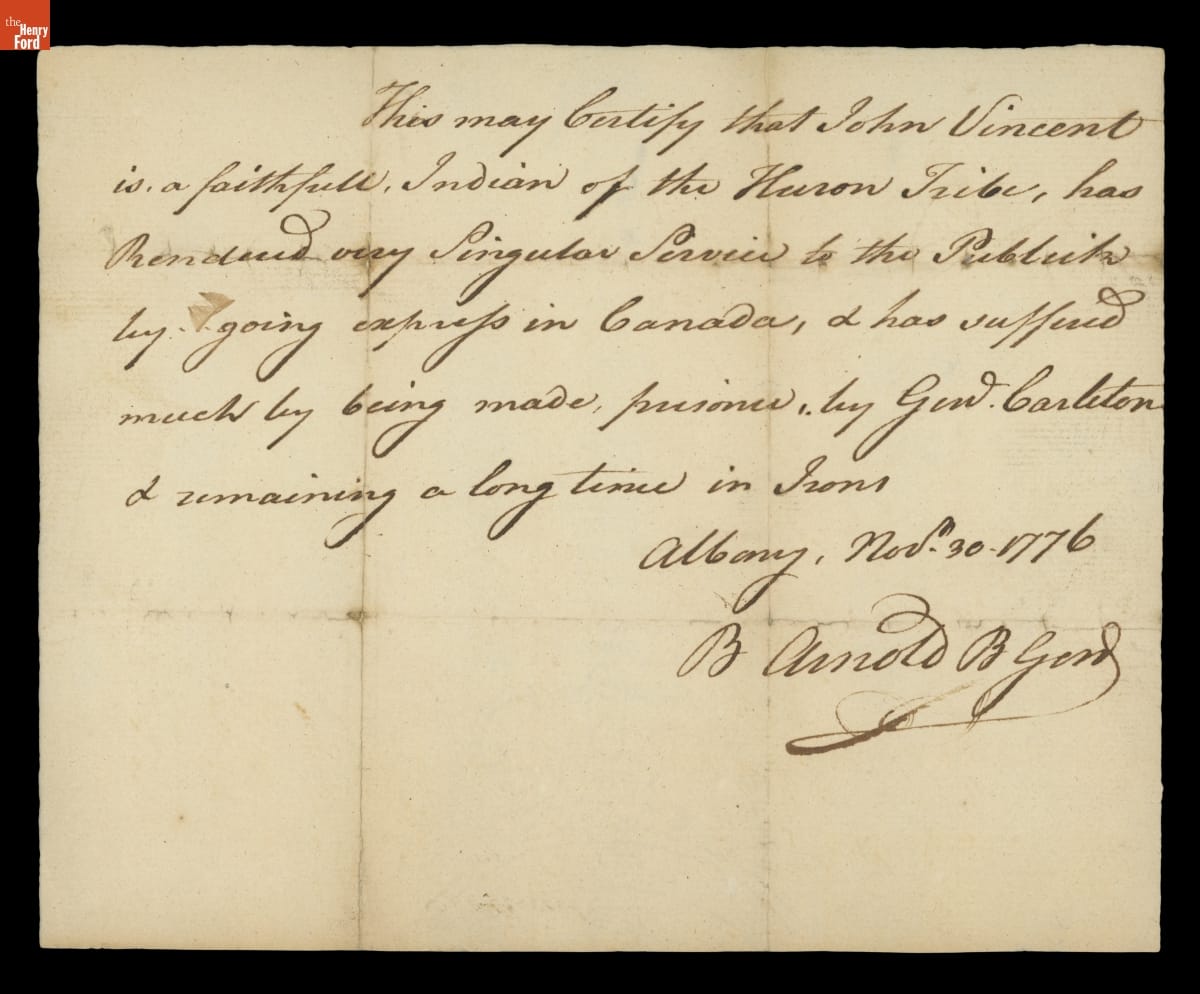 the
Henry
Ford
This may Certify that John Vincent
is a faithfull Indian of the Huron Tribe, has
Rendered very Singular Service to the Publick
by going express in Canada, & has suffered
much by being made prisoner, by Genl. Carleton
& remaining a long time in Irons
Albany, Novr. 30 1776
B Arnold B Genl